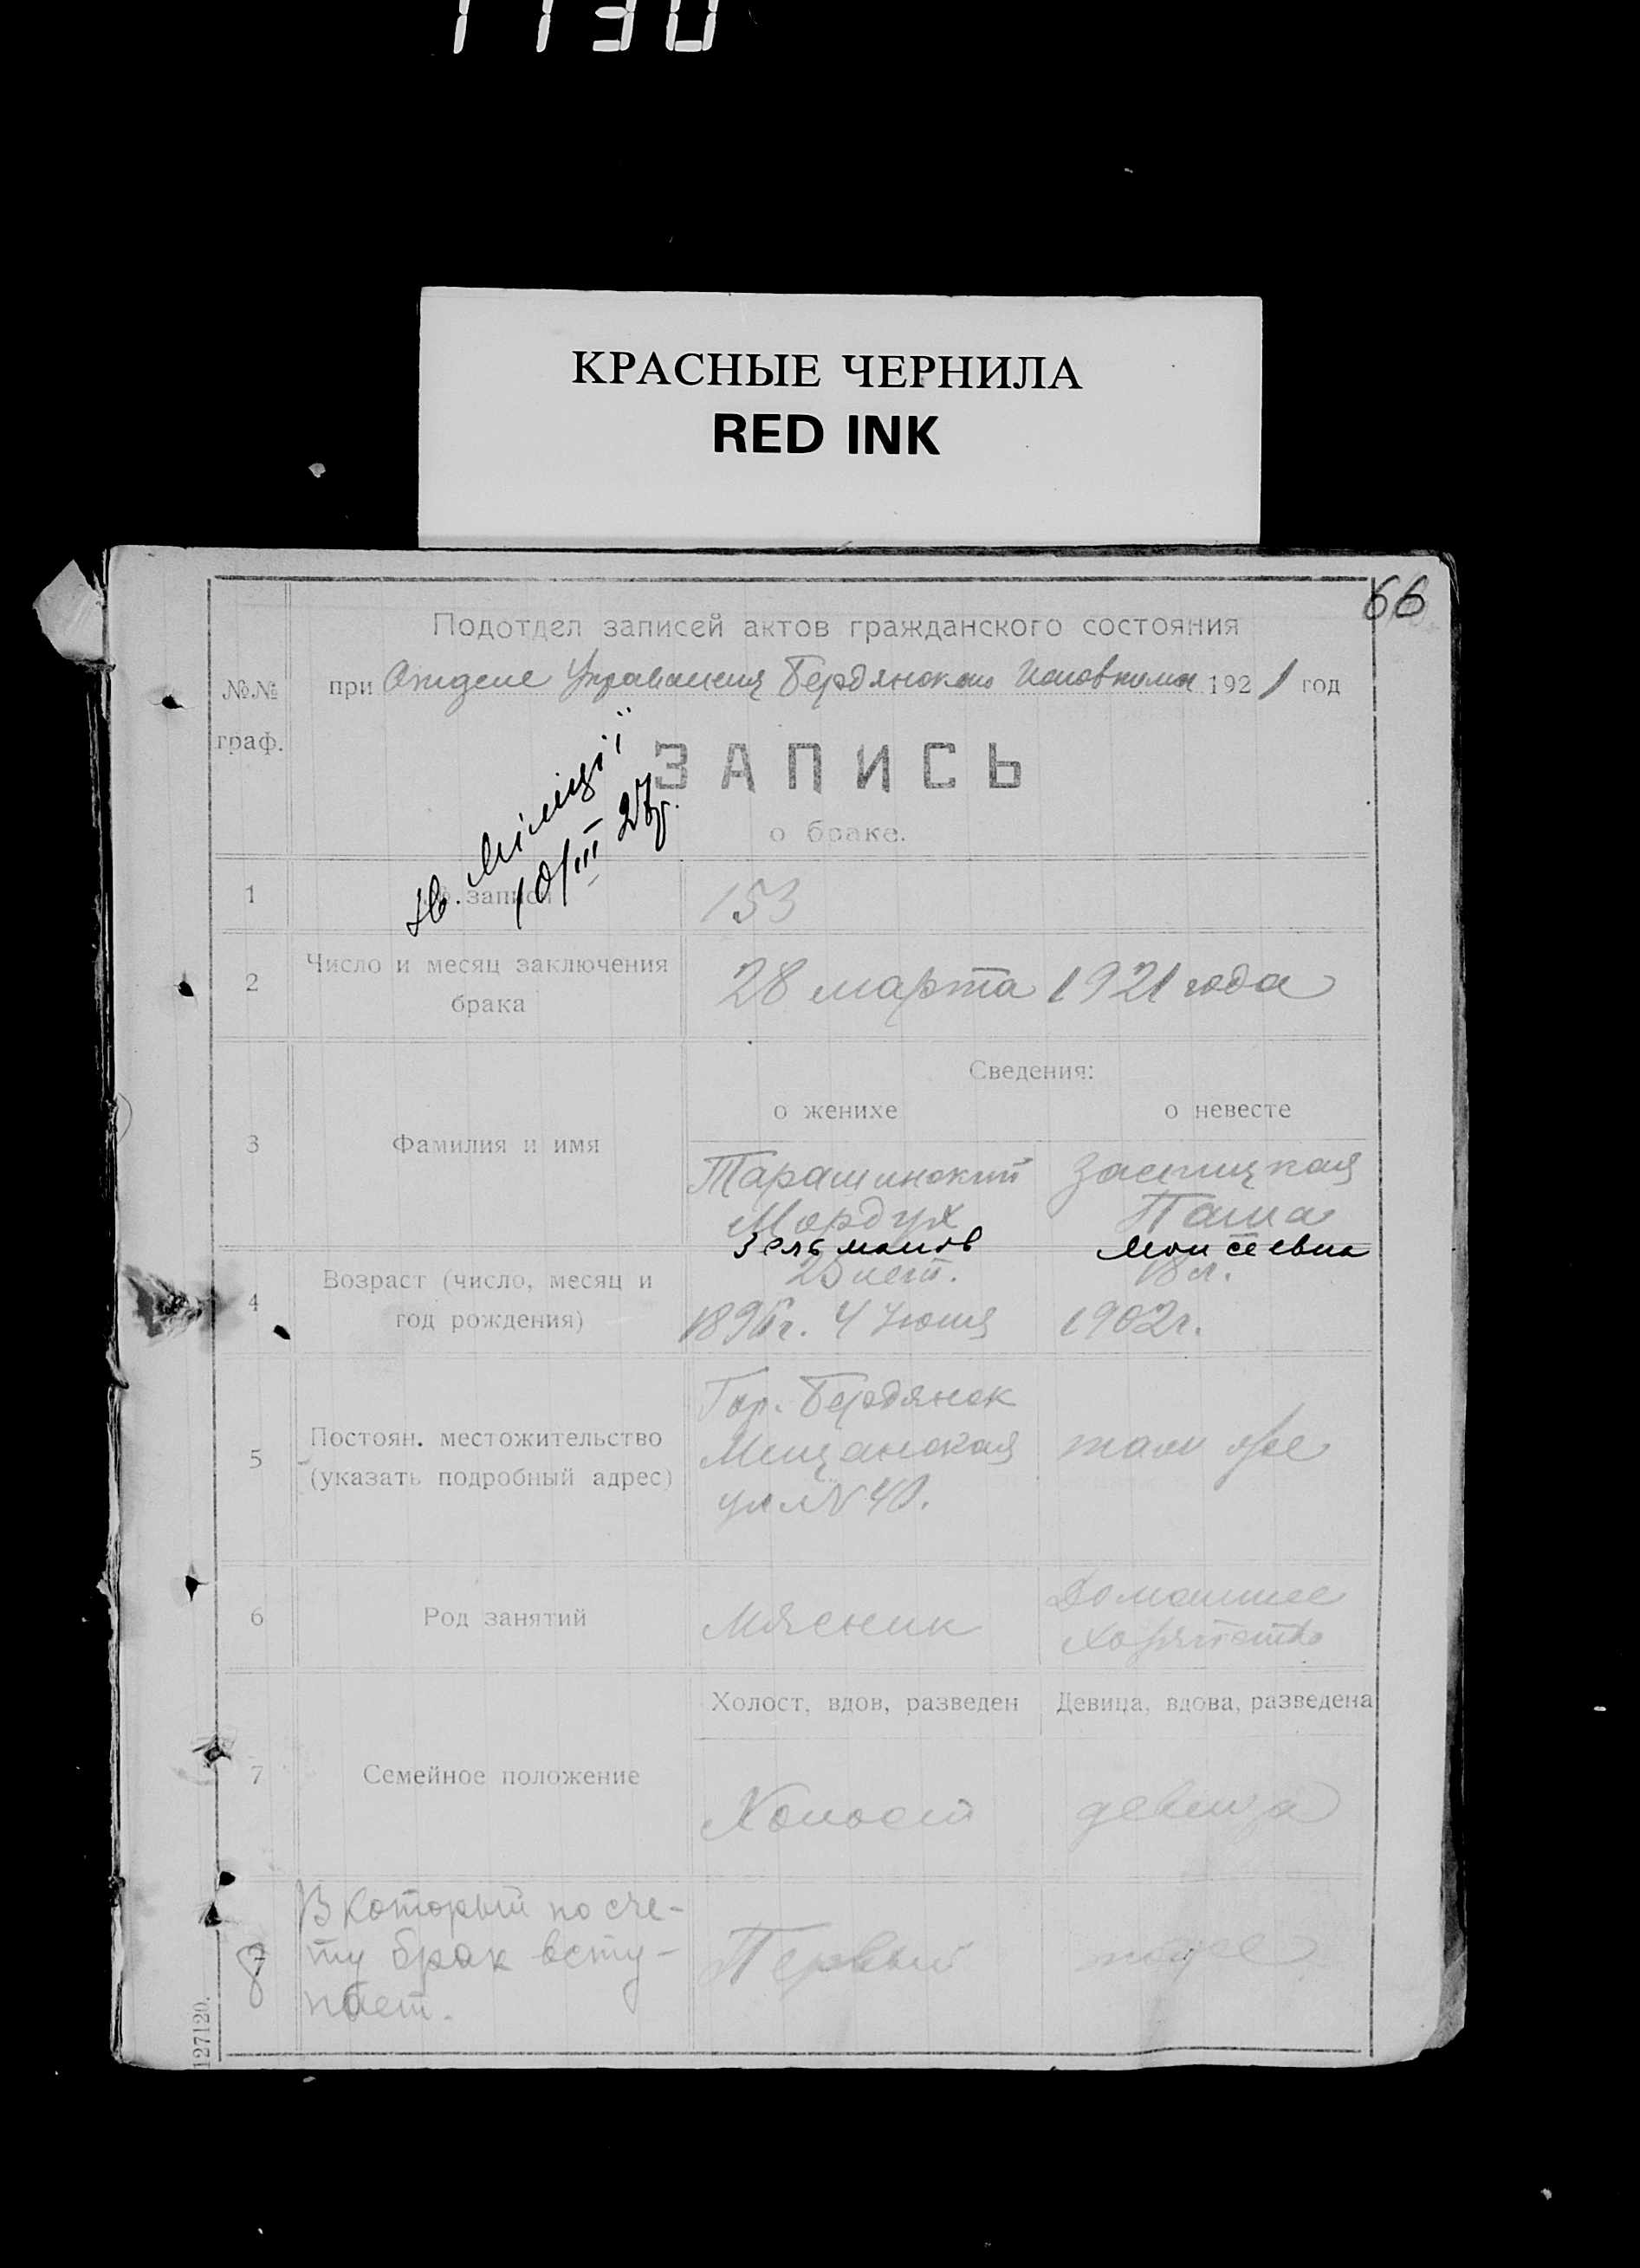 1130
КРАСНЫЕ ЧЕРНИЛА
RED INK
66
Подотдел записей актов гражданского состояния
№№ граф.
при Отделе Управления Бердянского Исполкома 1921 год
ЗАПИСЬ
о браке.
Міліції
10/III 27г.
1 записи 153
2 Число и месяц заключения брака 28 марта 1921 года
Сведения:
о женихе о невесте
3 Фамилия и имя
Таращинский
Мордух
Зельманов
Паша
Моисеевна
4 Возраст (число, месяц и год рождения)
25 лет. 18 л.
4 Июня 1902г.
5 Постоян. местожительство (указать подробный адрес)
Гор. Бердянск
Мещанская
ул. № 40.
там же
6 Род занятий
Мясник
Домашнее
Хозяйство
Холост, вдов, разведен Девица, вдова, разведена
7 Семейное положение
Холост девица
8 В который по сче-
ту брак всту-
пает.
Первый тоже
127120.